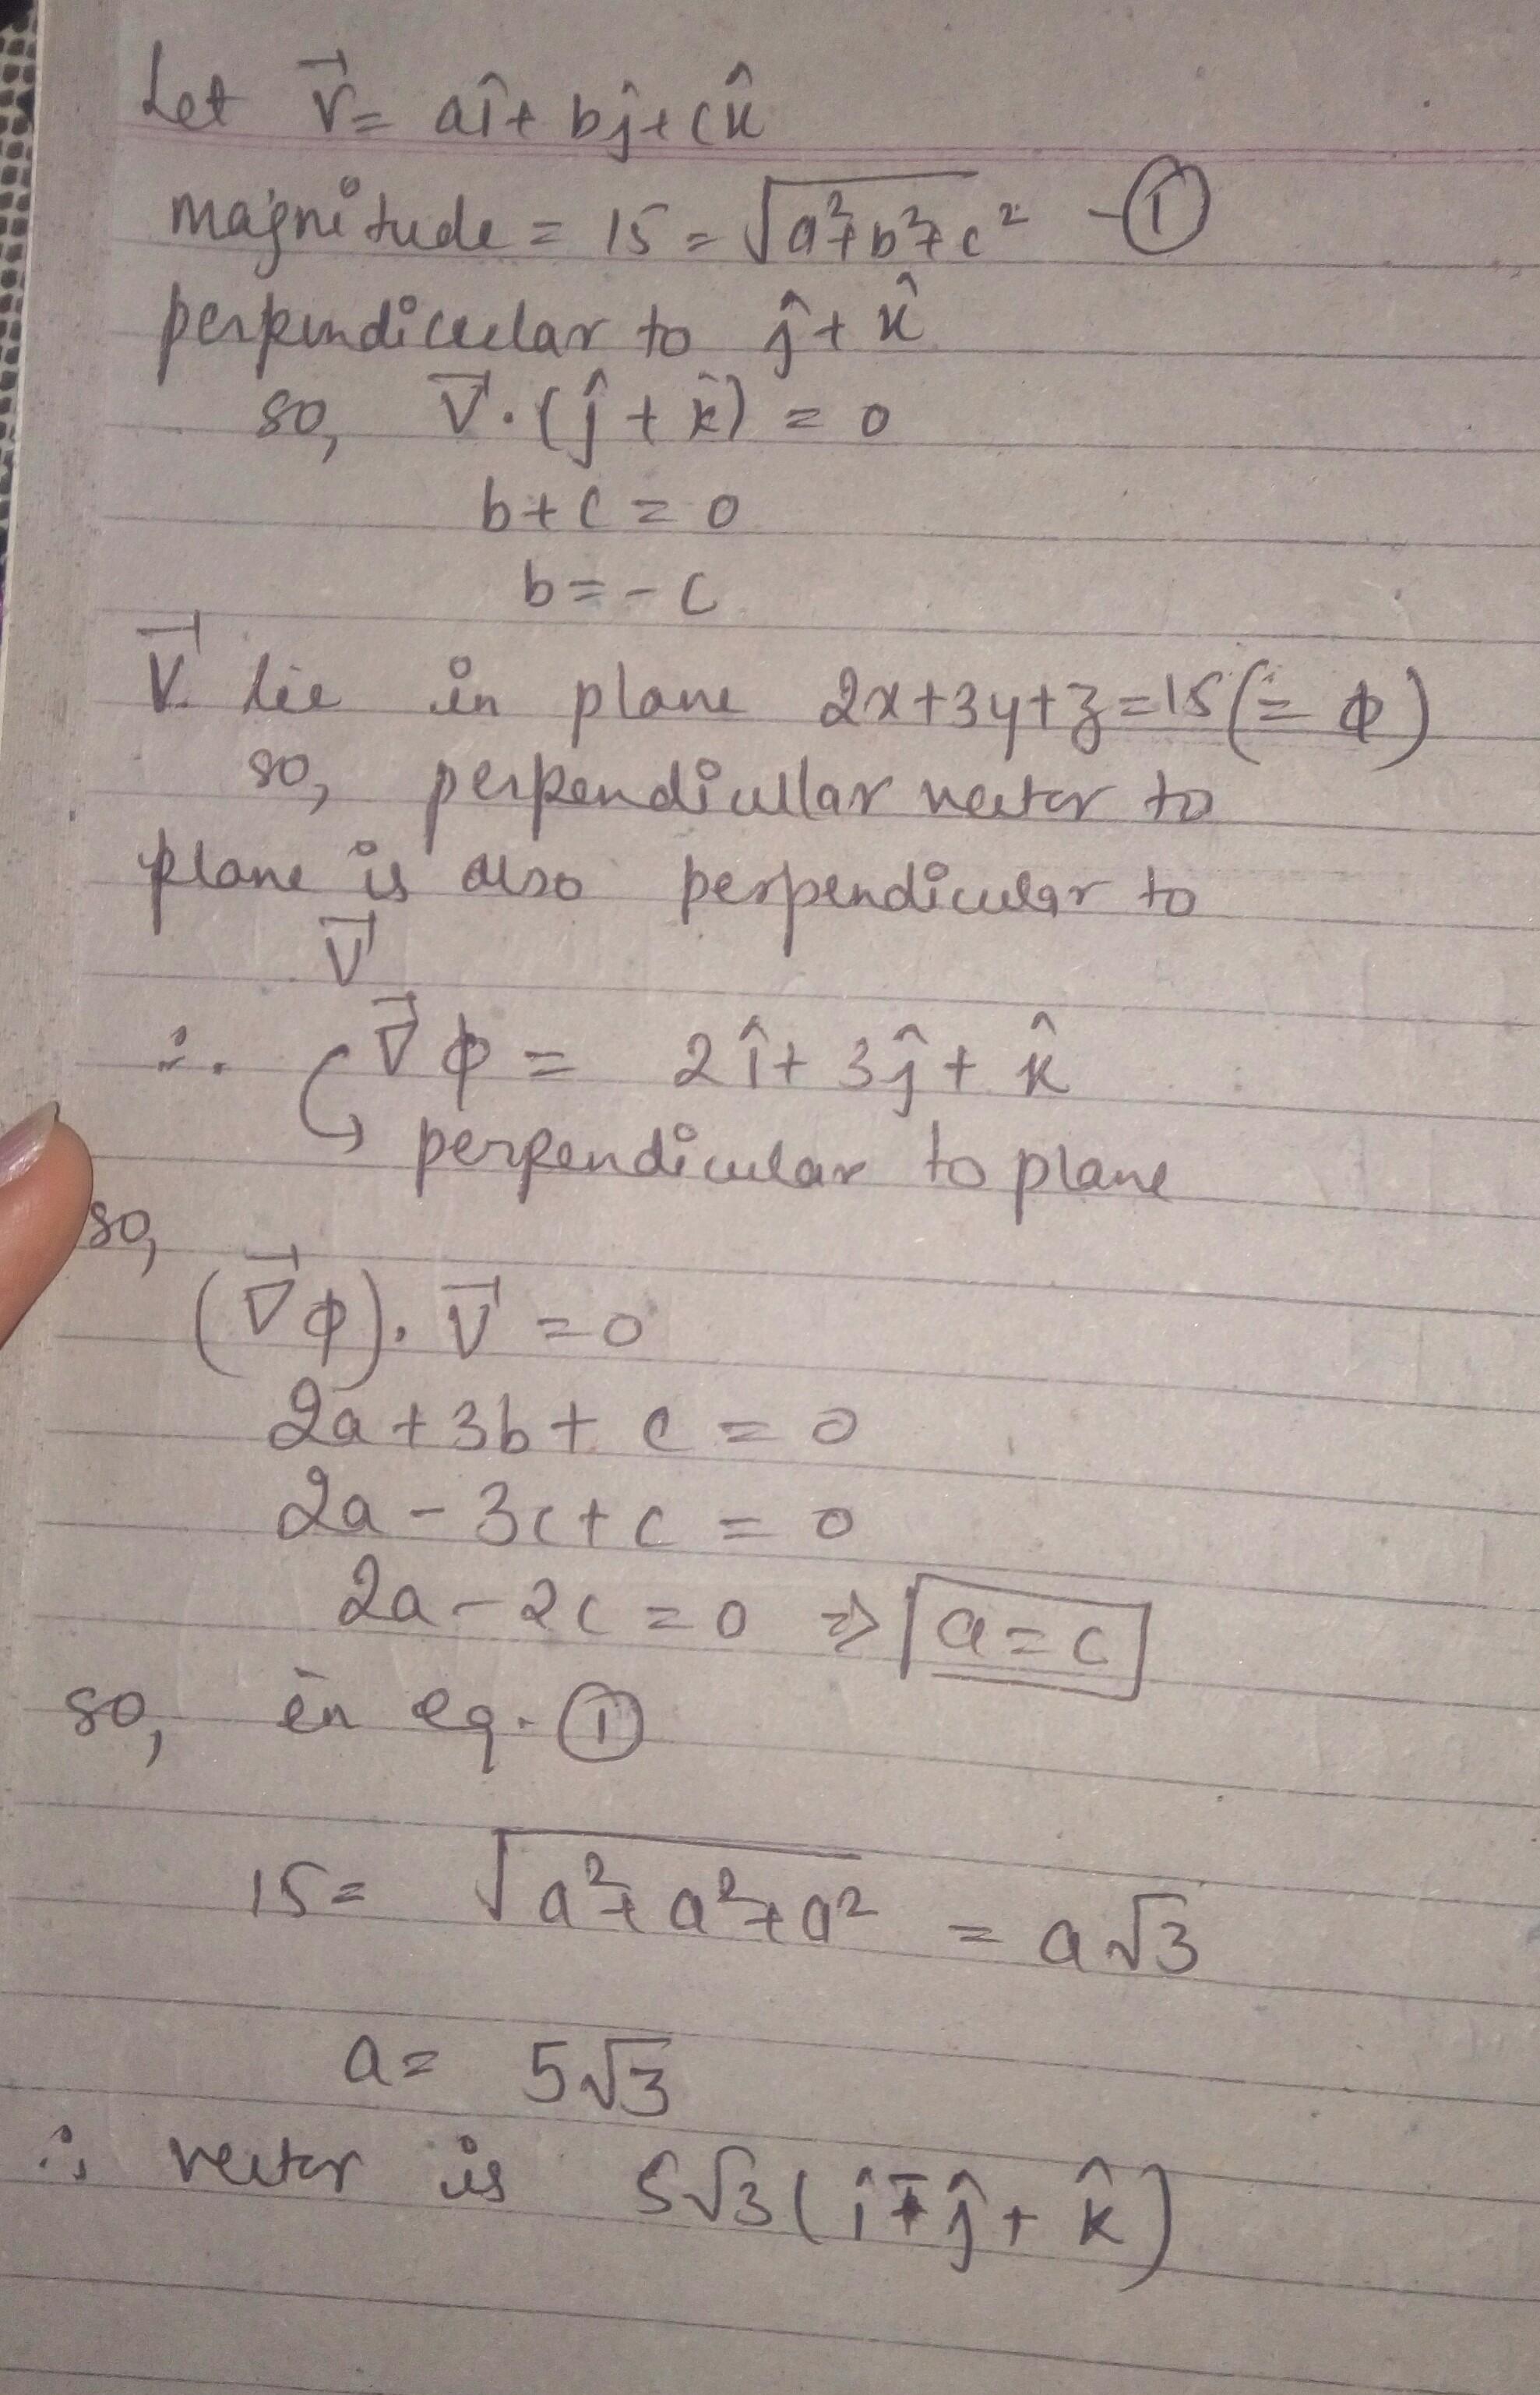 Let V⃗ = aî + bĵ + ck̂
magnitude = 15 = √a²+b²+c² - ①
perpendicular to ĵ + k̂
so, V⃗ . (ĵ + k̂) = 0
b + c = 0
b = - c
V⃗ lie in plane 2x+3y+z=15 (= φ)
so, perpendicullar vector to
plane is also perpendicular to
V⃗
∴ ∇⃗φ = 2î + 3ĵ + k̂
↳ perpendicular to plane
so,
(∇⃗φ) . V⃗ = 0
2a + 3b + c = 0
2a - 3c + c = 0
2a - 2c = 0 ⇒ a = c
so, in eq. ①
15 = √a²+a²+a² = a√3
a = 5√3
∴ vector is 5√3 (î - ĵ + k̂)